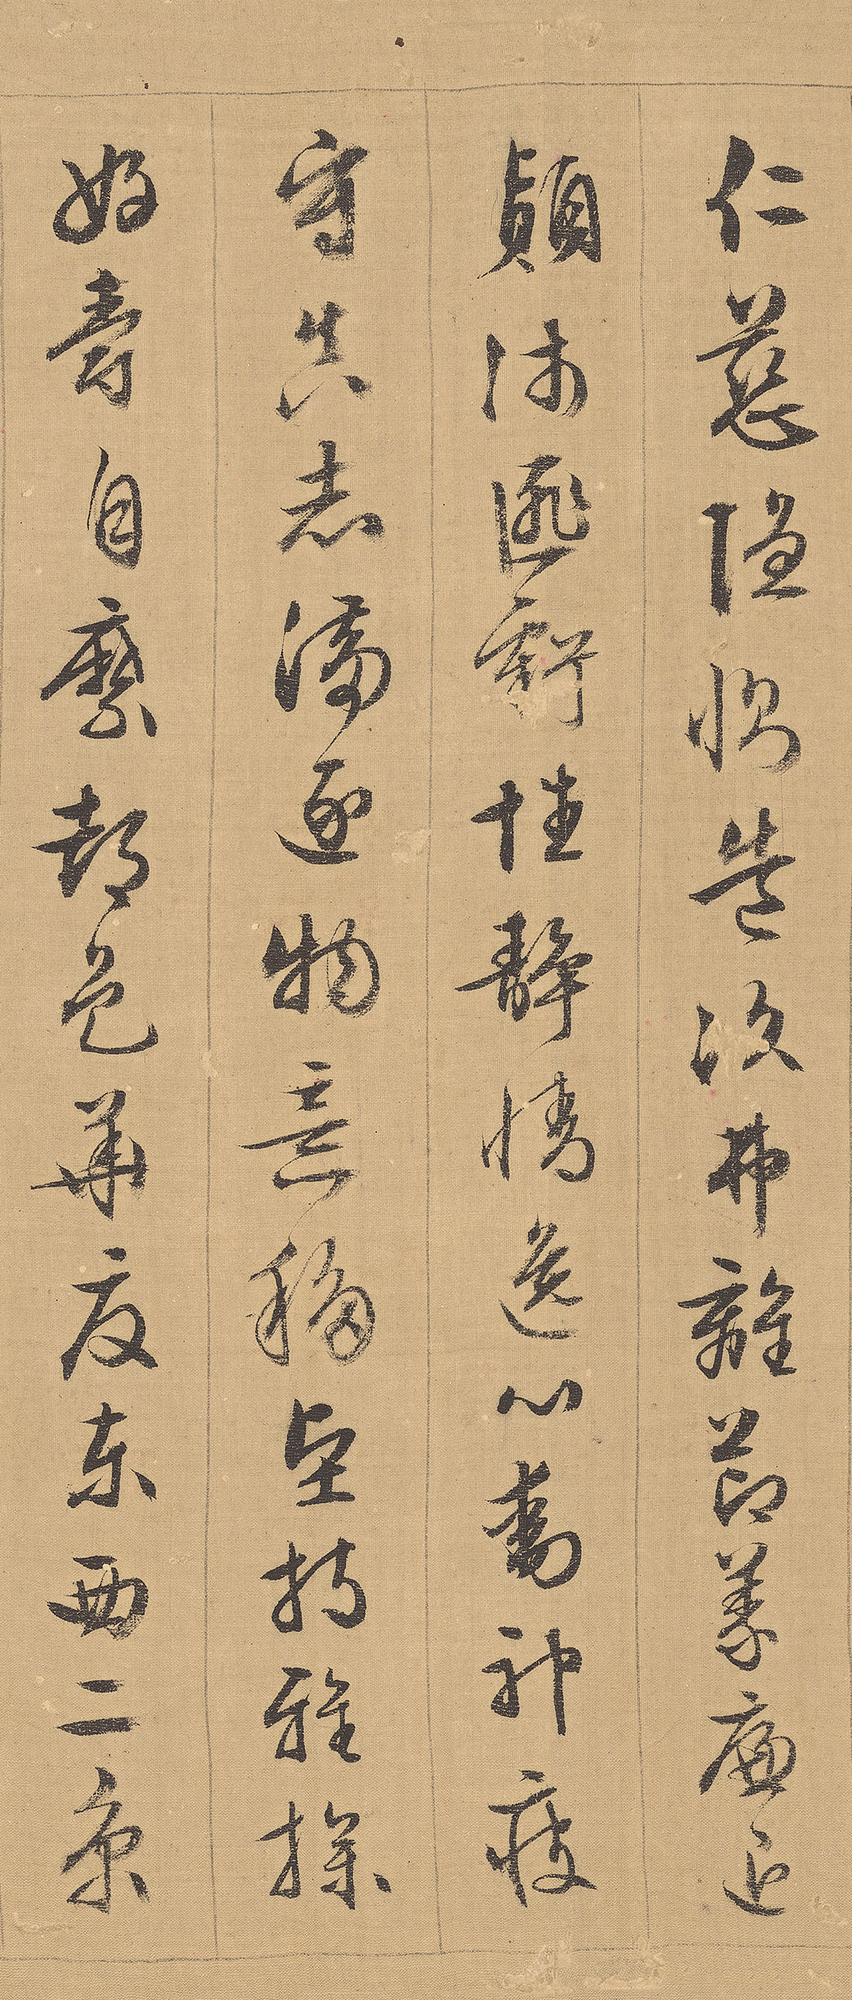 仁慈隱惻造次弗離節義廉退
顛沛匪虧性靜情逸心動神疲
守真志滿逐物意移堅持雅操
好爵自縻都邑華夏東西二京